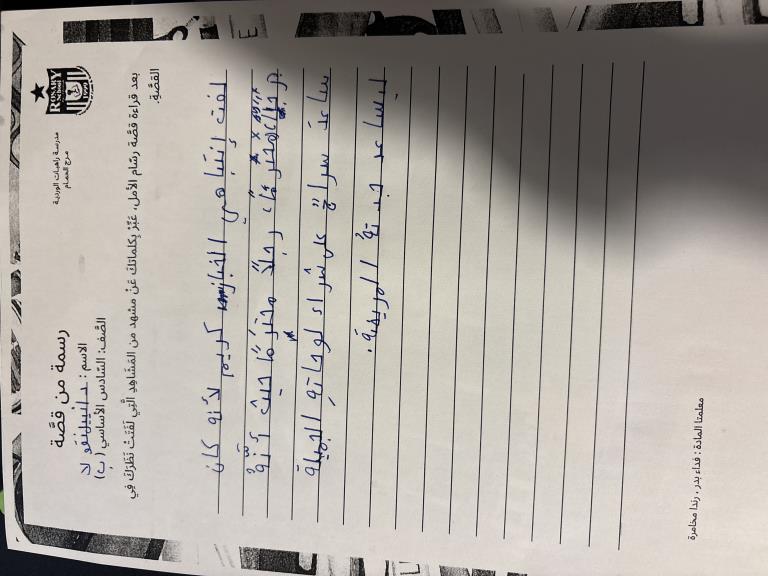 ROSARY
School
مدرسة راهبات الوردية
مرج الحمام
رسمة من قصَّة
الاسم : دانييل نقولا
الصَّف: السّادس الأساسي (ب)
بعد قراءة قصَّة رسّام الأمل، عَبِّرْ بِكلماتكَ عَنْ مشهد من المَشاهِدِ الَّتِي لَفَتَتْ نَظَرَكَ فِي
القصَّةِ.
لفت إنتباهي الخباز كريم لأنه كان
رجلاً محترمًا حيث أنّهُ
ساعدَ سراجٌ على شراء لوحاتهِ الجميلة
ليساعد جدتهُ المريضة.
معلمتا المادة : فداء بدر ، رندا مخامرة